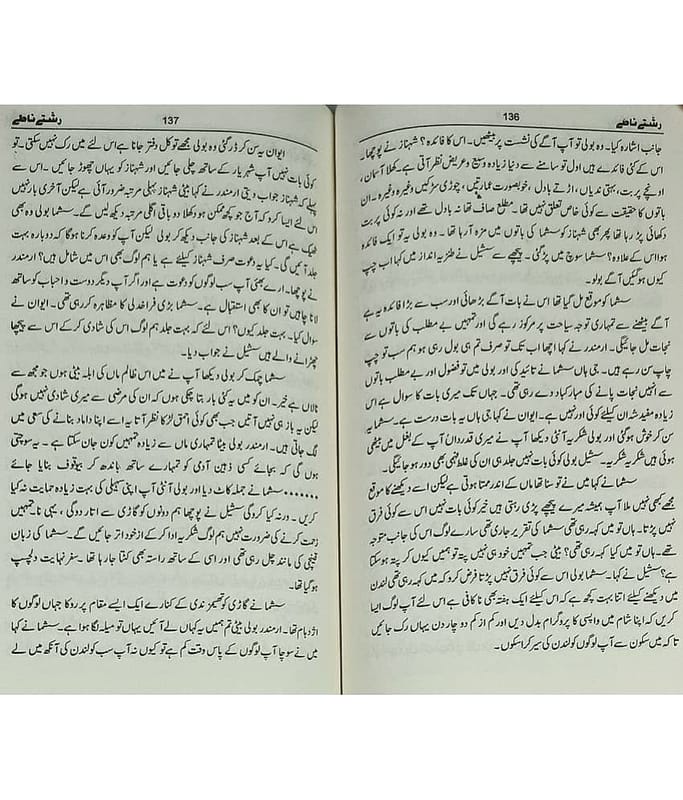 رشتے ناطے 136
جانب اشارہ کیا۔ وہ بولی تو آپ آگے کی نشست پر بیٹھیں۔ اس کا فائدہ؟ شہناز نے پوچھا۔
اس کے کئی فائدے ہیں اول تو سامنے سے دنیا زیادہ وسیع و عریض نظر آتی ہے۔ کھلا آسمان،
اونچے پربت، بہتی ندیاں، اڑتے بادل، خوبصورت عمارتیں، چوڑی سڑکیں وغیرہ وغیرہ۔ ان
باتوں کا حقیقت سے کوئی خاص تعلق نہیں تھا۔ مطلع صاف تھا نہ بادل تھے اور نہ کوئی پربت
دکھائی پڑ رہا تھا پھر بھی شہناز کو سشما کی باتوں میں مزہ آرہا تھا۔ وہ بولی یہ تو ایک فائدہ
ہوا اس کے علاوہ؟ سشما سوچ میں پڑ گئی۔ پیچھے سے سشیل نے طنزیہ انداز میں کہا اب چپ
کیوں ہو گئیں آگے بولو۔
سشما کو موقع مل گیا تھا اس نے بات آگے بڑھائی اور سب سے بڑا فائدہ یہ ہے
آگے بیٹھنے سے تمہاری توجہ سیاحت پر مرکوز رہے گی اور تمہیں بے مطلب کی باتوں سے
نجات مل جائیگی۔ ارمندر نے کہا اچھا اب تک تو صرف تم ہی بول رہی ہو ہم سب تو چپ
چاپ سن رہے ہیں۔ جی ہاں سشما نے تائید کی اور بولی میں تو فضول اور بے مطلب باتوں
سے انہیں نجات پانے کی مبارکباد دے رہی تھی۔ جہاں تک میری بات کا سوال ہے اس
زیادہ مفید شہ ان کیلئے کوئی اور نہیں ہے۔ ایوان نے کہا جی ہاں یہ بات درست ہے۔ سشما یہ
سن کر خوش ہو گئی اور بولی شکریہ آنٹی دیکھا آپ نے میری قدر داں آپ کے بغل میں بیٹھی
ہوئی ہیں شکریہ شکریہ۔ سشیل بولی کوئی بات نہیں جلد ہی ان کی غلط فہمی بھی دور ہو جائیگی۔
سشما نے کہا میں نے تو سنا تھا ماں کے اندر ممتا ہوتی ہے لیکن اسے دیکھنے کا موقع
مجھے کبھی نہیں ملا آپ ہمیشہ میرے پیچھے پڑی رہتی ہیں خیر کوئی بات نہیں اس سے کوئی فرق
نہیں پڑتا۔ ہاں تو میں کہہ رہی تھی سشما کی تقریر جاری تھی سارے لوگ اس کی جانب متوجہ
تھے۔ ہاں تو میں کیا کہہ رہی تھی؟ بیٹی جب تمہیں خود ہی نہیں پتہ تو ہمیں کیوں کر پتہ ہو سکتا
ہے؟ سشیل نے کہا۔ سشما بولی اس سے کوئی فرق نہیں پڑتا فرض کرو کہ میں کہہ رہی تھی لندن
میں دیکھنے کیلئے اتنا بہت کچھ ہے کہ اس کیلئے ایک ہفتہ بھی ناکافی ہے اس لئے آپ لوگ ایسا
کریں کہ اپنا شام میں واپسی کا پروگرام بدل دیں اور کم از کم دو چار دن یہاں رک جائیں
تاکہ میں سکون سے آپ لوگوں کو لندن کی سیر کرا سکوں۔
137 رشتے ناطے
ایوان یہ سن کر ڈر گئی وہ بولی مجھے تو کل دفتر جانا ہے اس لئے میں رک نہیں سکتی۔ تو
کوئی بات نہیں آپ شہریار کے ساتھ چلی جائیں اور شہناز کو یہاں چھوڑ جائیں۔ اس سے
پہلے کہ شہناز جواب دیتی ارمندر نے کہا بیٹی شہناز پہلی مرتبہ ضرور آئی ہے لیکن آخری بار نہیں
اس لئے ایسا کرو کہ آج جو کچھ ممکن ہو دکھلا دو باقی اگلی مرتبہ دیکھ لیں گے۔ سشما بولی وہ بھی
ٹھیک ہے اس کے بعد شہناز کی جانب دیکھ کر بولی لیکن آپ کو وعدہ کرنا ہو گا کہ دوبارہ بہت
جلد آئیں گی۔ کیا یہ دعوت صرف شہناز کیلئے ہے یا ہم لوگ بھی اس میں شامل ہیں؟ ارمندر
نے پوچھا۔ ارے بھئی آپ سب لوگوں کو دعوت ہے اور اگر آپ دیگر دوست و احباب کو ساتھ
لانا چاہیں تو ان کا بھی استقبال ہے۔ سشما بڑی فراخدلی کا مظاہرہ کر رہی تھی۔ ایوان نے
سوال کیا۔ بہت جلد کیوں؟ اس لئے کہ بہت جلد ہم لوگ اس کی شادی کر کے اس سے پیچھا
چھڑانے والے ہیں سشیل نے جواب دیا۔
سشما چہک کر بولی دیکھا آپ نے میں اس ظالم ماں کی ابلہ بیٹی ہوں جو مجھ سے
نالاں ہے خیر۔ ان کو میں یہ کئی بار بتا چکی ہوں کہ ان کی مرضی سے میری شادی نہیں ہو گی
لیکن یہ باز ہی نہیں آتیں جب بھی کوئی احمق لڑکا نظر آتا یہ اسے اپنا داماد بنانے کی سعی میں
لگ جاتی ہیں۔ ارمندر بولی بیٹا تمہاری ماں سے زیادہ تمہیں کون جان سکتا ہے۔ یہ سوچتی
ہوں گی کہ بجائے کسی ذہین آدمی کو تمہارے ساتھ باندھ کر بیوقوف بنایا جائے
........ سشما نے جملہ کاٹ دیا اور بولی آنٹی آپ اپنی سہیلی کی بہت زیادہ حمایت نہ کیا
کریں۔ ورنہ کیا کرو گی سشیل نے پوچھا ہم دونوں کو گاڑی سے اتار دو گی، یہی نا تمہیں
زحمت کرنے کی ضرورت نہیں ہم لوگ شکریہ ادا کر کے از خود اتر جائیں گے۔ سشما کی زبان
قینچی کی مانند چل رہی تھی اور اسی کے ساتھ راستہ بھی کٹتا جا رہا تھا۔ سفر نہایت دلچسپ
ہو گیا تھا۔
سشما نے گاڑی کو تھیمز ندی کے کنارے ایک ایسے مقام پر روکا جہاں لوگوں کا
اژدہام تھا۔ ارمندر بولی بیٹی تم ہمیں یہ کہاں لے آئیں یہاں تو میلہ لگا ہوا ہے۔ سشما نے کہا
میں نے سوچا آپ لوگوں کے پاس وقت کم ہے تو کیوں نہ آپ سب کو لندن کی آنکھ میں لے